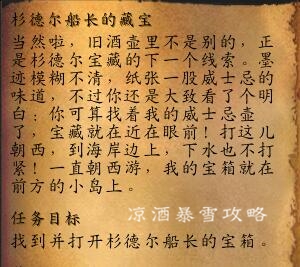 杉德尔船长的藏宝
当然啦，旧酒壶里不是别的，正
是杉德尔宝藏的下一个线索。墨
迹模糊不清，纸张一股威士忌的
味道，不过你还是大致看了个明
白：你可算找着我的威士忌壶
了，宝藏就在近在眼前！打这儿
朝西，到海岸边上，下水也不打
紧！一直朝西游，我的宝箱就在
前方的小岛上。
凉酒暴雪攻略
任务目标
找到并打开杉德尔船长的宝箱。